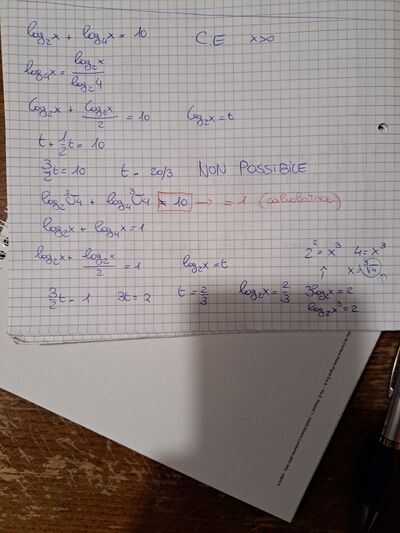 log₂x + log₄x = 10   C.E.   x>0
log₄x = log₂x / log₂4
log₂x + log₂x / 2 = 10   log₂x = t
t + 1/2 t = 10
3/2 t = 10   t = 20/3   NON POSSIBILE
log₂∛4 + log₄∛4 = 10 → = 1 (calcolatrice)
log₂x + log₄x = 1
log₂x + log₂x / 2 = 1   log₂x = t
2² = x³   4 = x³
↑   x = ∛4
3/2 t = 1   3t = 2   t = 2/3   log₂x = 2/3   3log₂x = 2
log₂x³ = 2